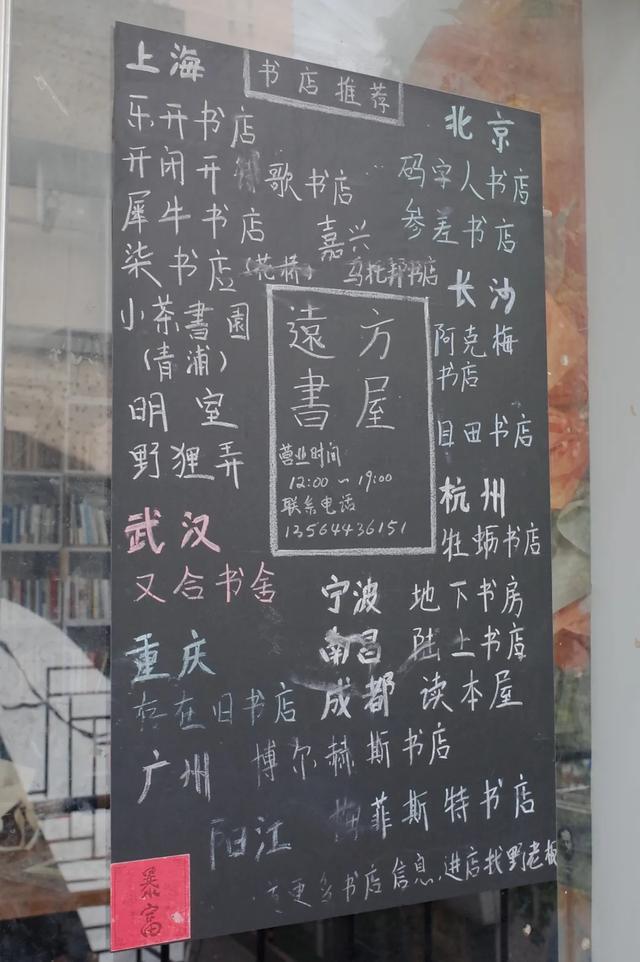 书店推荐
上海
乐开书店
开闭开 歌书店
犀牛书店
柒书店(花桥)
小茶書園
(青浦)
明室
野狸弄
嘉兴
乌托邦书店
北京
码字人书店
参差书店
长沙
阿克梅
书店
目田书店
遠方
書屋
营业时间
12:00~19:00
联系电话
13564436151
杭州
牡蛎书店
武汉
又合书舍
宁波 地下书房
南昌 陆上书店
成都 读本屋
重庆
存在旧书店
广州 博尔赫斯书店
阳江 梅菲斯特书店
更多书店信息,进店找野老板
暴富